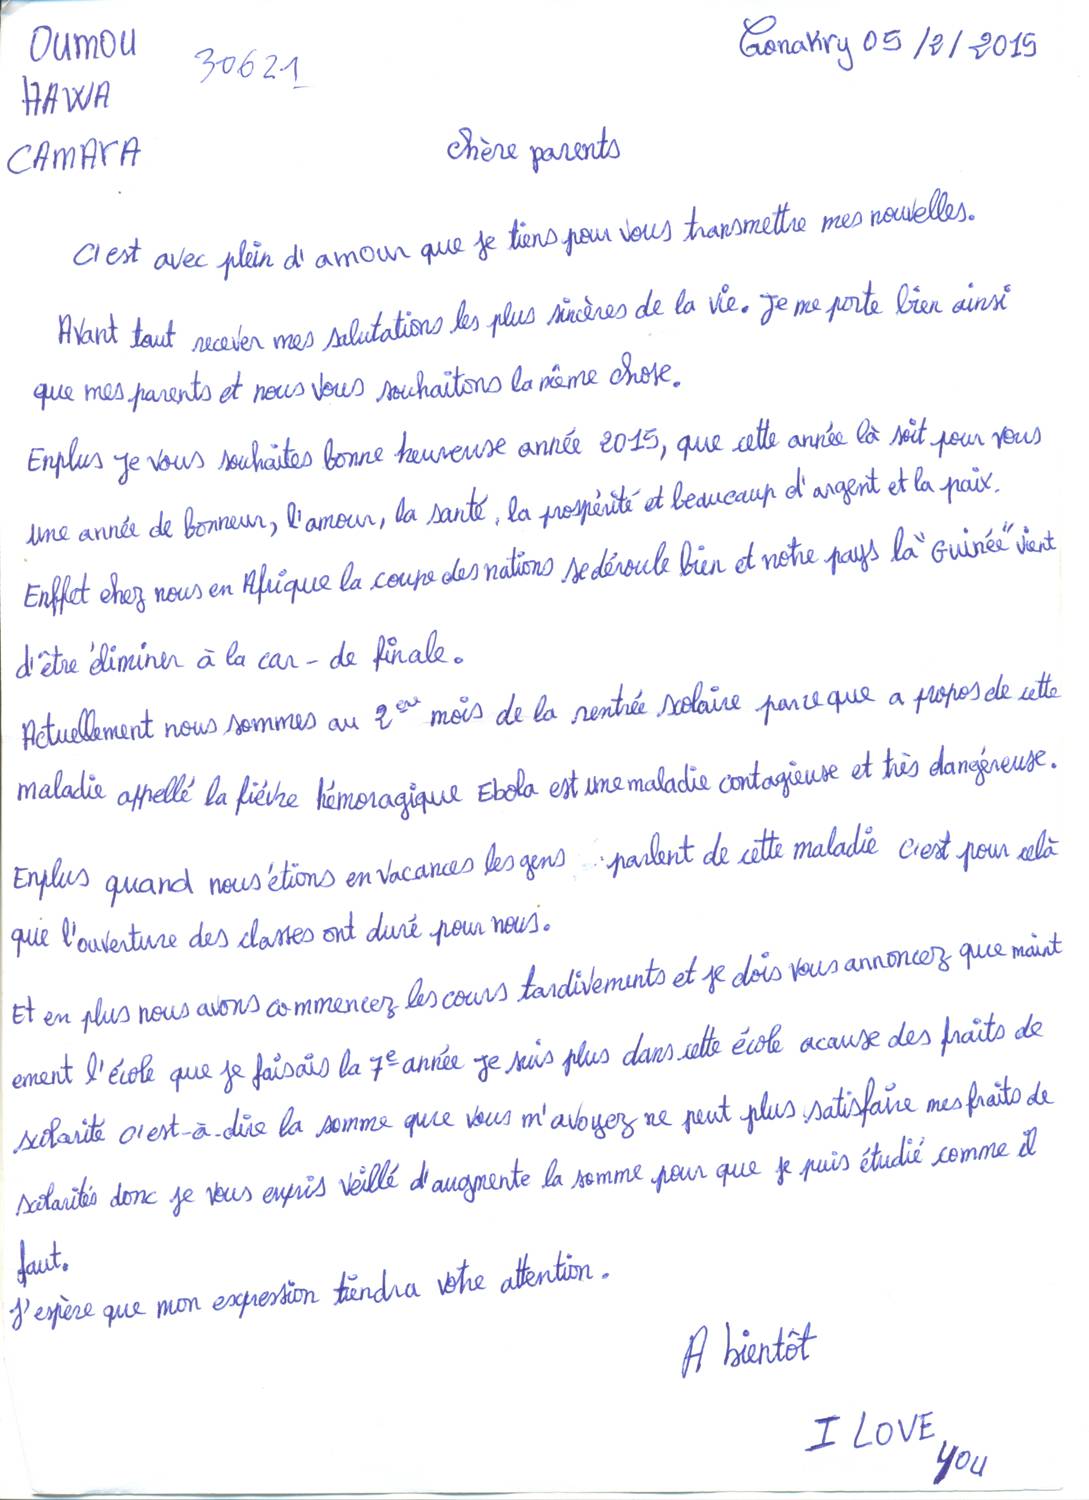 Oumou
HAWA
CAMARA
30621
Conakry 05/2/2015
chère parents
C'est avec plein d'amour que je tiens pour vous transmettre mes nouvelles.
Avant tout recever mes salutations les plus sincères de la vie. Je me porte bien ainsi
que mes parents et nous vous souhaitons la même chose.
Enplus je vous souhaites bonne heureuse année 2015, que cette année là soit pour vous
une année de bonneur, l'amour, la santé, la prospérité et beaucoup d'argent et la paix.
Enffet chez nous en Afrique la coupe des nations se déroule bien et notre pays la "Guinée" vient
d'être éliminer à la car-de finale.
Actuellement nous sommes au 2ere mois de la rentrée scolaire parce que a propos de cette
maladie appellé la fiévre hémoragique Ebola est une maladie contagieuse et très dangéreuse.
Enplus quand nous étions en vacances les gens parlent de cette maladie c'est pour celà
que l'ouverture des classes ont duré pour nous.
Et en plus nous avons commencez les cours tardivements et je dois vous annoncez que maint
ement l'école que je faisais la 7e année je suis plus dans cette école acause des fraits de
scolarité c'est-à-dire la somme que vous m'avoyez ne peut plus satisfaire mes fraits de
scolarités donc je vous enpris véillé d'augmente la somme pour que je puis étudié comme il
faut.
J'espère que mon expression tiendra votre attention.
A bientôt
I LOVE
you